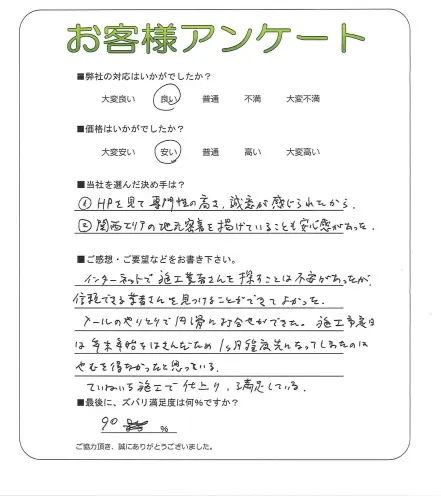 お客様アンケート
■弊社の対応はいかがでしたか？
大変良い 良い 普通 不満 大変不満
■価格はいかがでしたか？
大変安い 安い 普通 高い 大変高い
■当社を選んだ決め手は？
① HPを見て専門性の高さ、誠意が感じられたから。
② 関西エリアの地元密着を掲げていることも安心感があった。
■ご感想・ご要望などをお書き下さい。
インターネットで施工業者さんを探すことは不安があったが、
信頼できる業者さんを見つけることができてよかった。
メールのやりとりで円滑にお合せができた。施工予定日
は年末年始をはさんだため1ヶ月程度先になってしまったのは
やむを得なかったと思っている。
ていねいな施工で仕上り、満足している。
■最後に、ズバリ満足度は何％ですか？
90 ％
ご協力頂き、誠にありがとうございました。